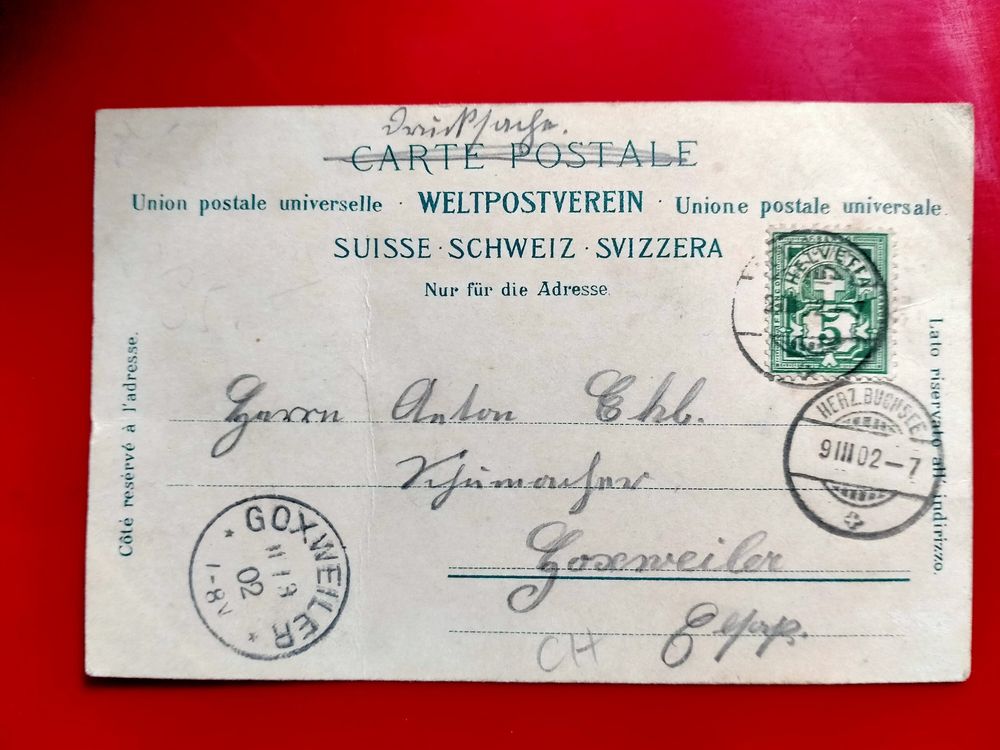 Drucksache.
CARTE POSTALE
Union postale universelle · WELTPOSTVEREIN · Unione postale universale.
SUISSE · SCHWEIZ · SVIZZERA
Nur für die Adresse.
HELVETIA
5
Côté reservé à l'adresse.
Lato riservato all' indirizzo.
HERZ.BUCHSEE
9 III 02–7
Herrn Anton
Schumacher
Goxweiler
Elsass.
GOXWEILER
02
CH